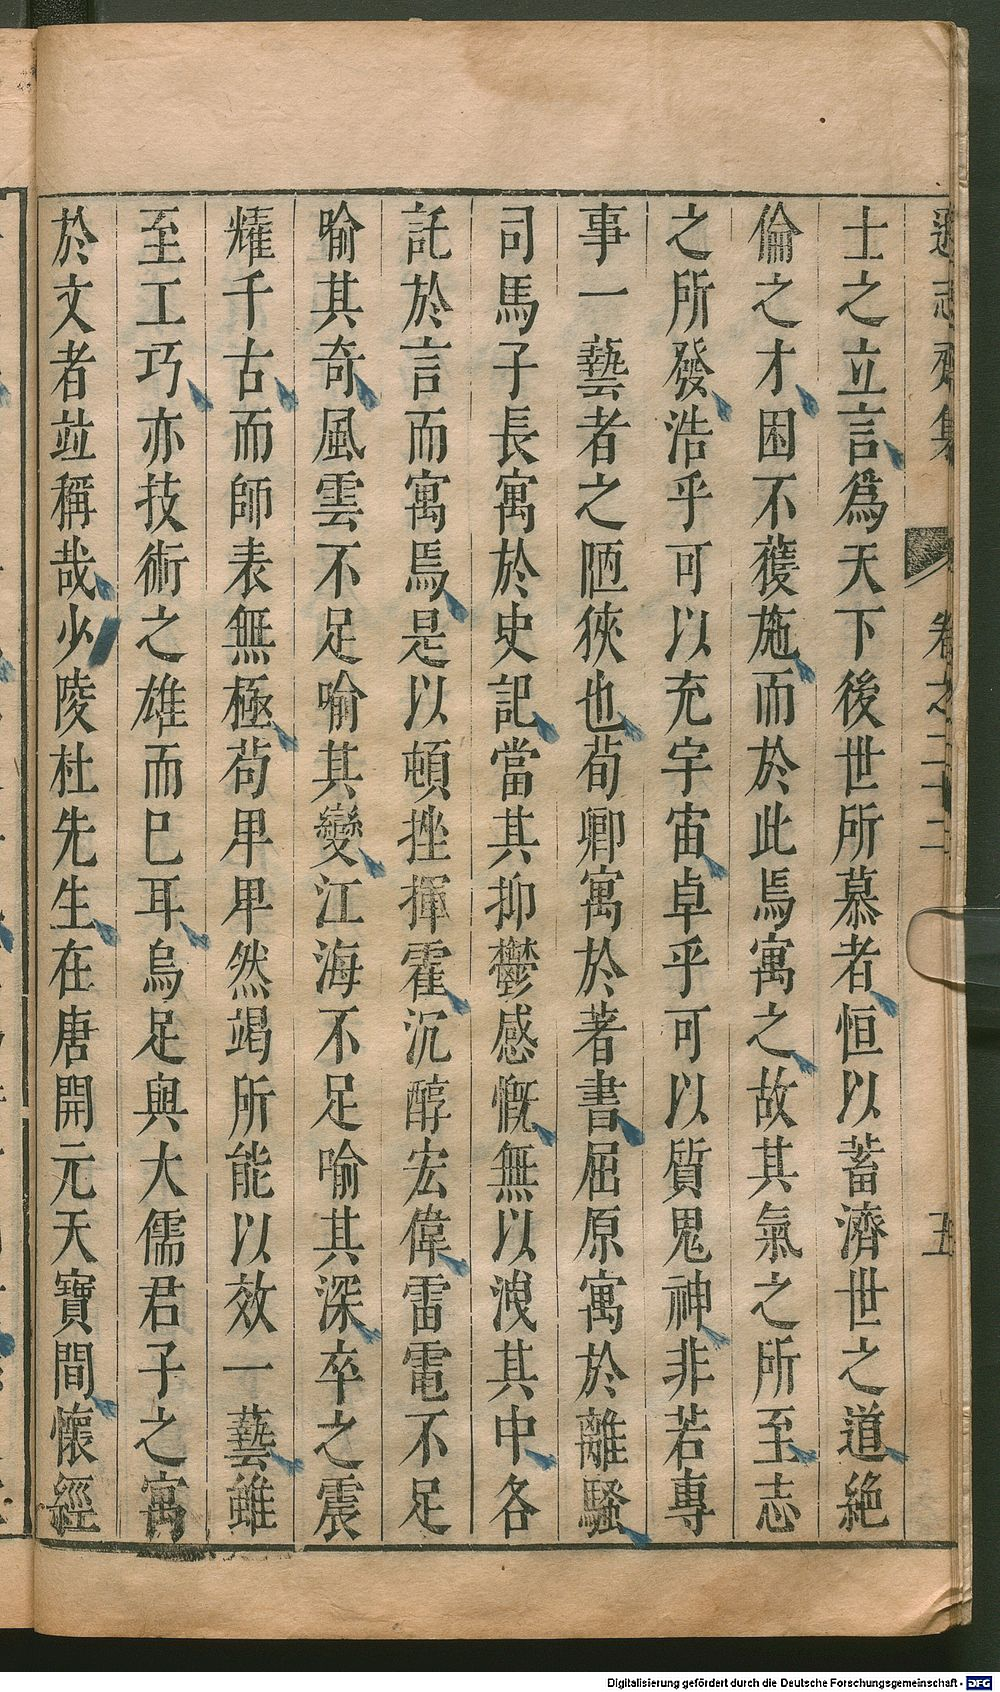 遜志齋集 卷之二十二 五
士之立言爲天下後世所慕者恒以蓄濟世之道絶
倫之才困不獲施而於此焉寓之故其氣之所至志
之所發浩乎可以充宇宙卓乎可以質鬼神非若專
事一藝者之陋狹也荀卿寓於著書屈原寓於離騷
司馬子長寓於史記當其抑鬱感慨無以洩其中各
託於言而寓焉是以頓挫揮霍沉醇宏偉雷電不足
喻其奇風雲不足喻其變江海不足喻其深卒之震
耀千古而師表無極苟卑卑然竭所能以效一藝雖
至工巧亦技術之雄而巳耳烏足與大儒君子之寓
於文者竝稱哉少陵杜先生在唐開元天寶間懷經
Digitalisierung gefördert durch die Deutsche Forschungsgemeinschaft - DFG